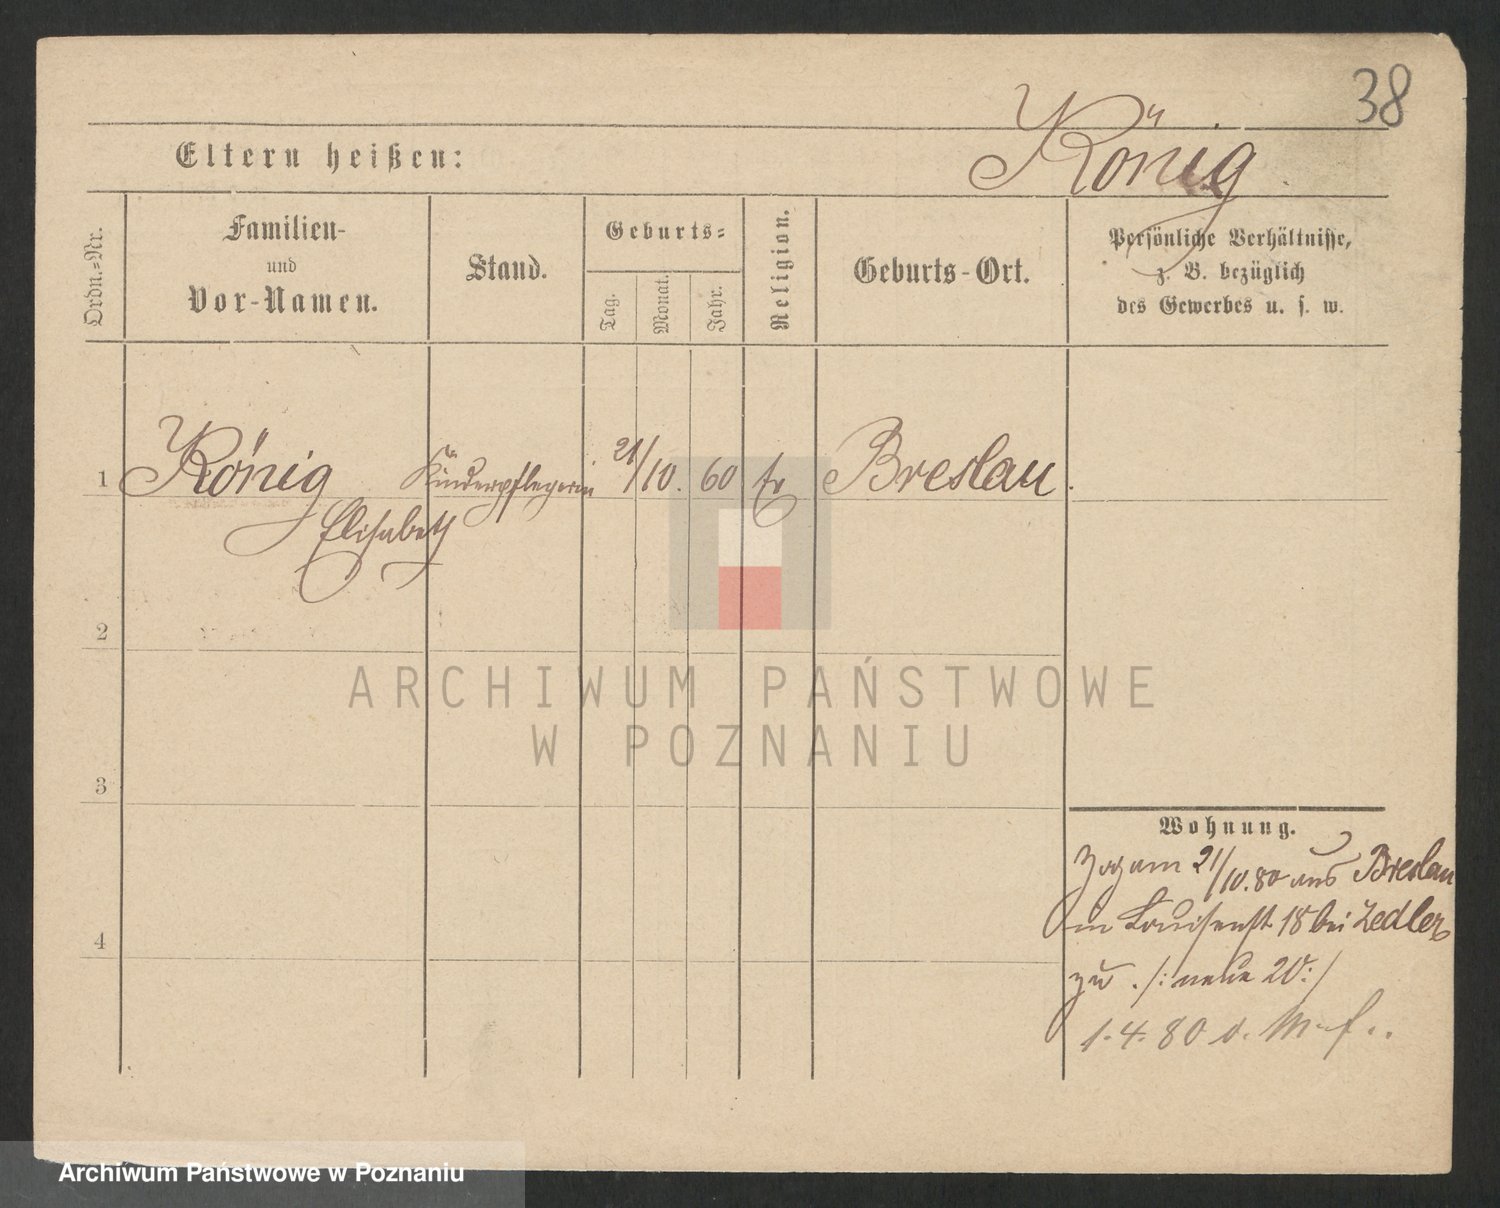 38
König
Eltern heißen:
Ordn.=Nr.
Familien-
und
Vor-Namen.
Stand.
Geburts=
Tag.
Monat.
Jahr.
Religion.
Geburts-Ort.
Persönliche Verhältnisse,
z. B. bezüglich
des Gewerbes u. s. w.
1 König Kinderpflegerin 21/10. 60 Ev Breslau.
Elisabeth
2
3
4
Wohnung.
Zog am 21/10.80 aus Breslau
in Louisenst 18 bei Zedler
zu. /: neue 20:/
1.4.80
ARCHIWUM PAŃSTWOWE
W POZNANIU
Archiwum Państwowe w Poznaniu